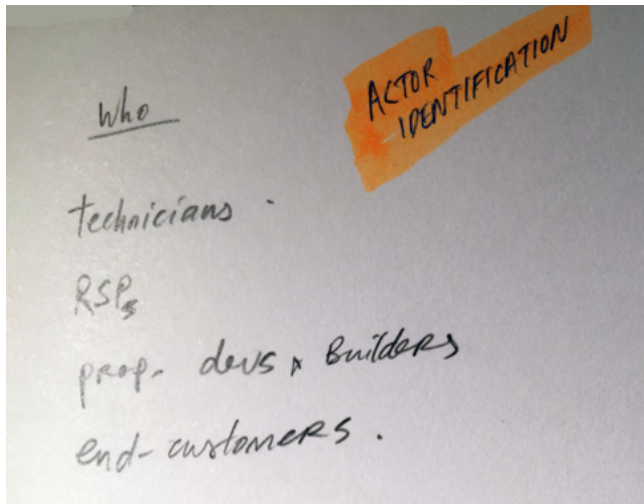 Who
ACTOR
IDENTIFICATION
technicians.
RSPs
prop. devs & Builders
end-customers.